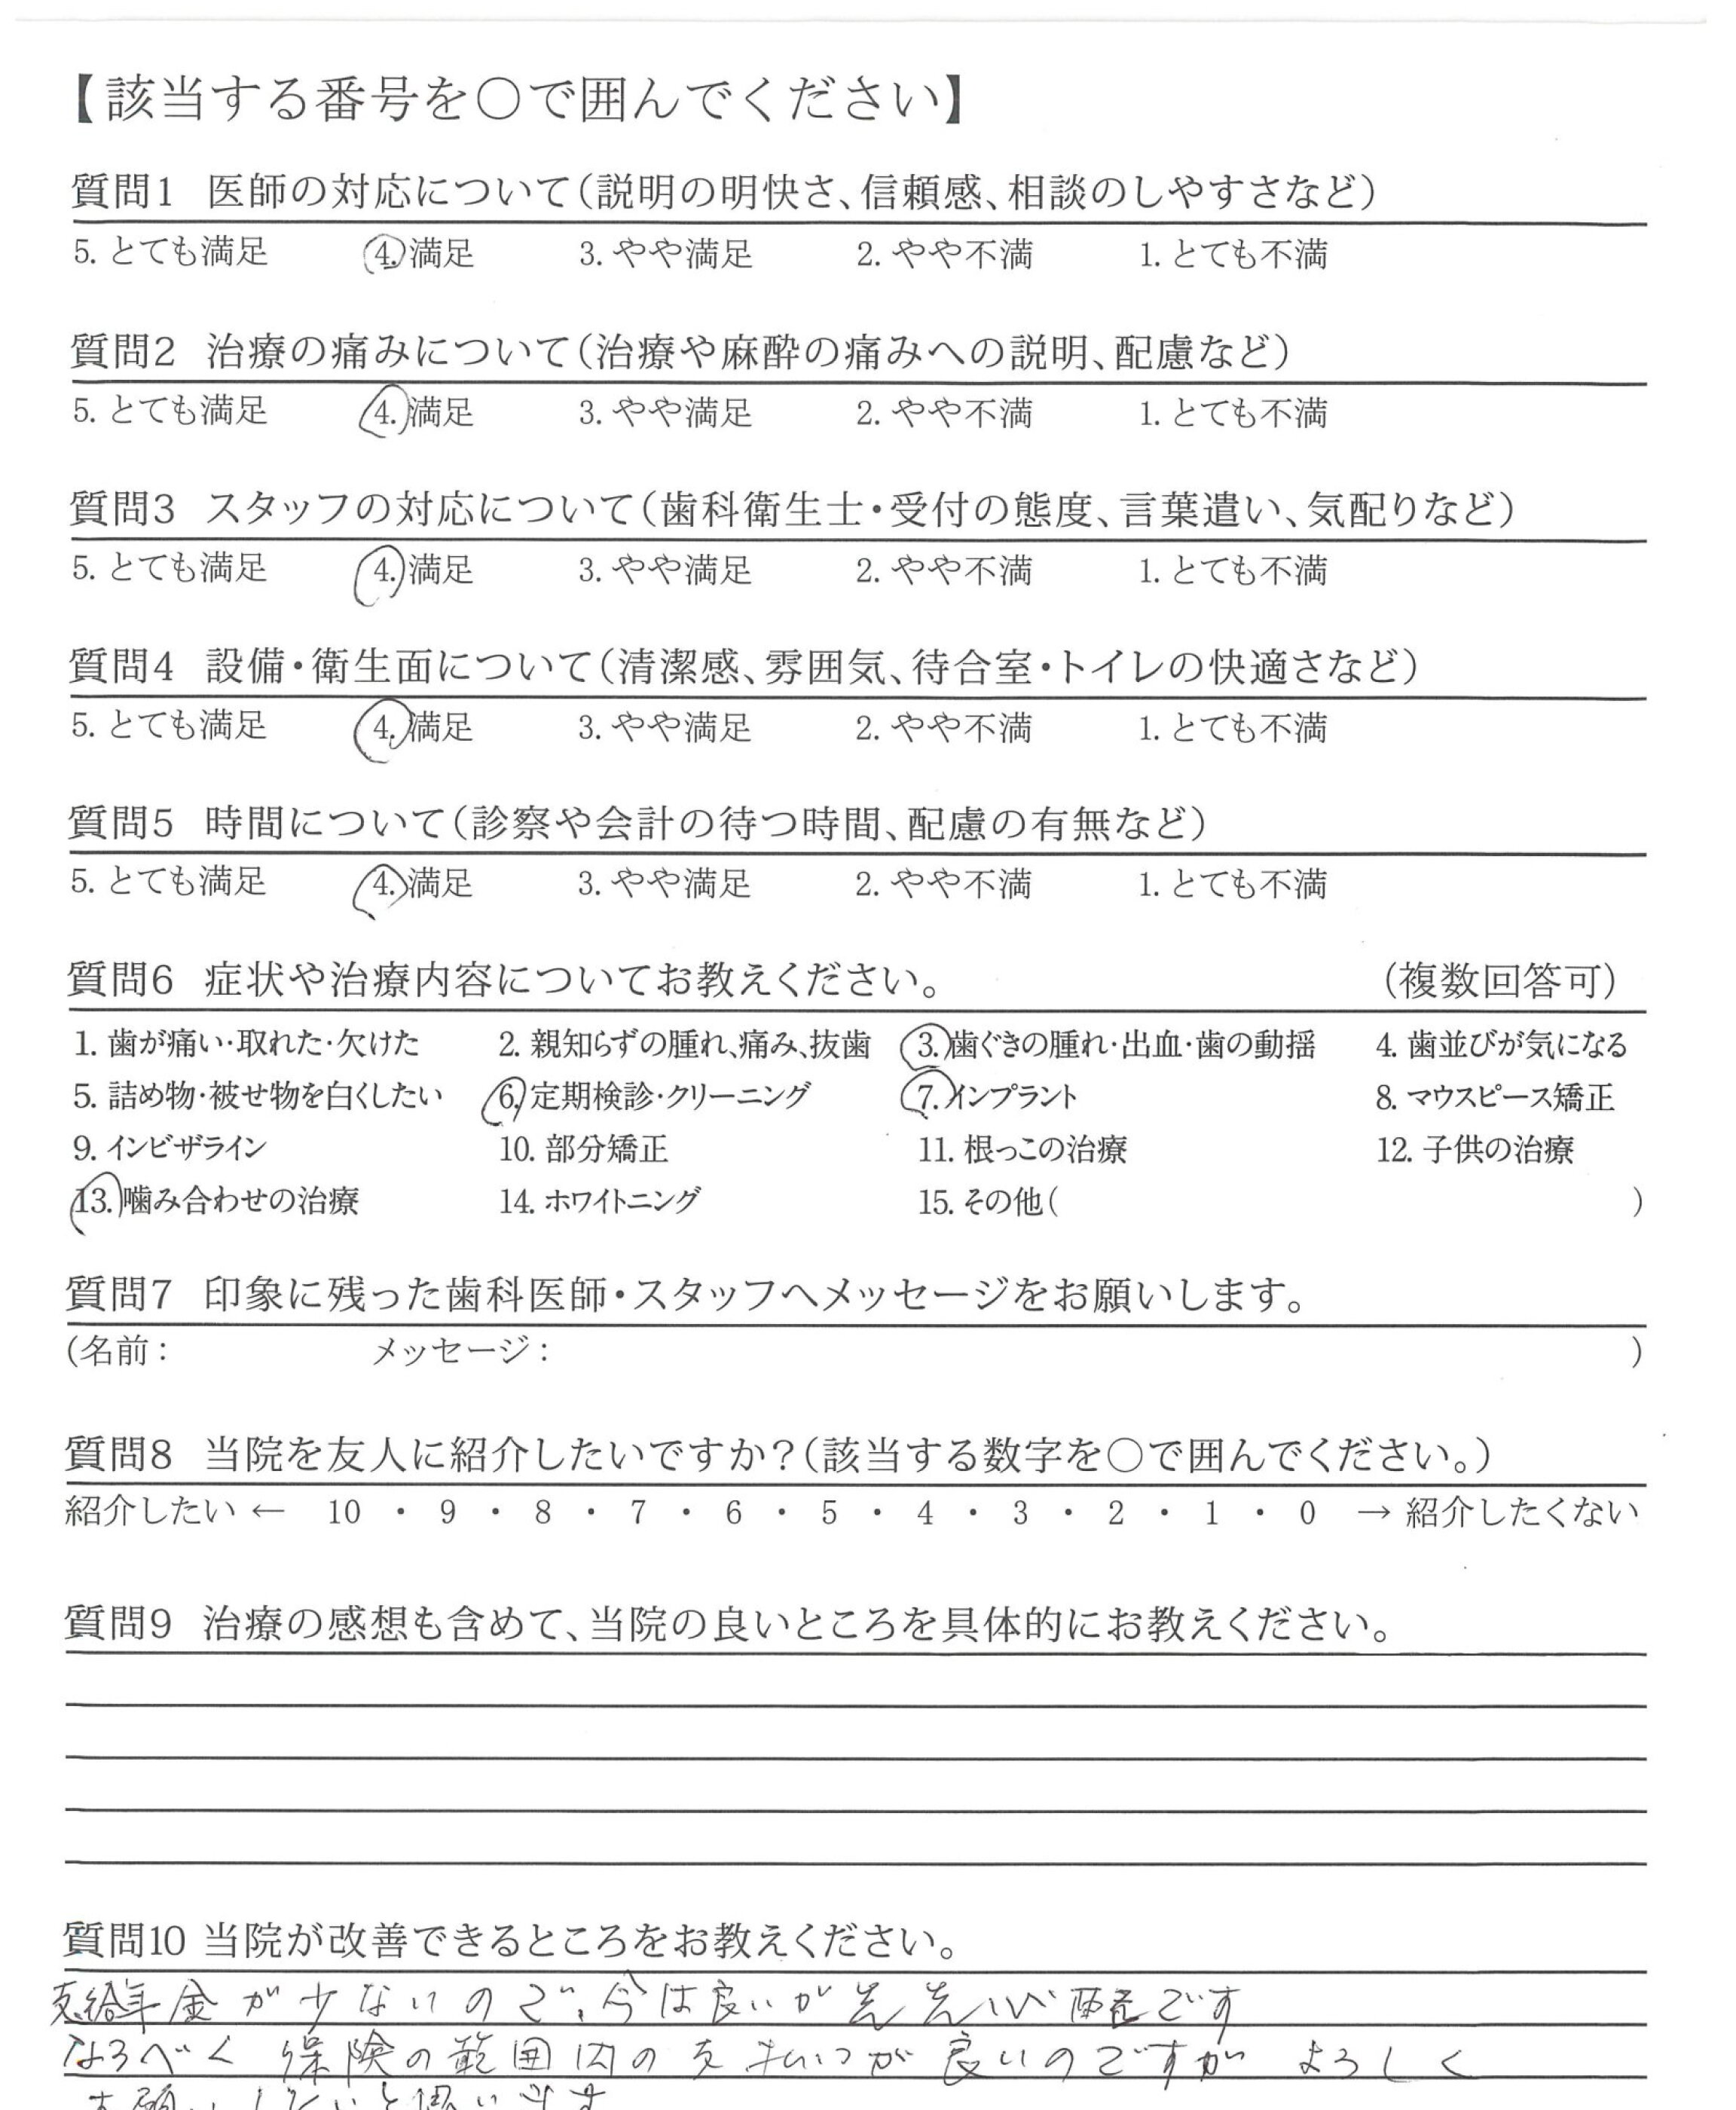 【該当する番号を○で囲んでください】
質問1 医師の対応について(説明の明快さ、信頼感、相談のしやすさなど)
5. とても満足 4. 満足 3. やや満足 2. やや不満 1. とても不満
質問2 治療の痛みについて(治療や麻酔の痛みへの説明、配慮など)
5. とても満足 4. 満足 3. やや満足 2. やや不満 1. とても不満
質問3 スタッフの対応について(歯科衛生士・受付の態度、言葉遣い、気配りなど)
5. とても満足 4. 満足 3. やや満足 2. やや不満 1. とても不満
質問4 設備・衛生面について(清潔感、雰囲気、待合室・トイレの快適さなど)
5. とても満足 4. 満足 3. やや満足 2. やや不満 1. とても不満
質問5 時間について(診察や会計の待つ時間、配慮の有無など)
5. とても満足 4. 満足 3. やや満足 2. やや不満 1. とても不満
質問6 症状や治療内容についてお教えください。 (複数回答可)
1. 歯が痛い・取れた・欠けた 2. 親知らずの腫れ、痛み、抜歯 3. 歯ぐきの腫れ・出血・歯の動揺 4. 歯並びが気になる
5. 詰め物・被せ物を白くしたい 6. 定期検診・クリーニング 7. インプラント 8. マウスピース矯正
9. インビザライン 10. 部分矯正 11. 根っこの治療 12. 子供の治療
13. 噛み合わせの治療 14. ホワイトニング 15. その他( )
質問7 印象に残った歯科医師・スタッフへメッセージをお願いします。
(名前: メッセージ: )
質問8 当院を友人に紹介したいですか?(該当する数字を○で囲んでください。)
紹介したい ← 10 ・ 9 ・ 8 ・ 7 ・ 6 ・ 5 ・ 4 ・ 3 ・ 2 ・ 1 ・ 0 → 紹介したくない
質問9 治療の感想も含めて、当院の良いところを具体的にお教えください。
質問10 当院が改善できるところをお教えください。
支給年金が少ないので、今は良いが先先心配です
なるべく保険の範囲内の支払いが良いのですが よろしく
お願いしたいと思います